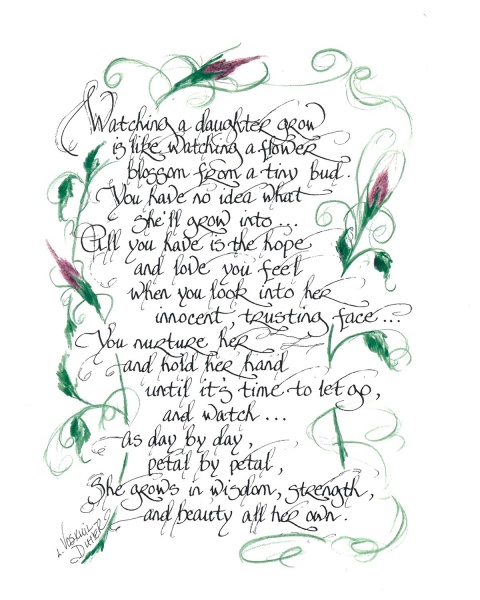 Watching a daughter grow
is like watching a flower
blossom from a tiny bud.
You have no idea what
she'll grow into ...
All you have is the hope
and love you feel
when you look into her
innocent, trusting face ...
You nurture her
and hold her hand
until it's time to let go,
and watch ...
as day by day,
petal by petal,
She grows in wisdom, strength,
and beauty all her own.